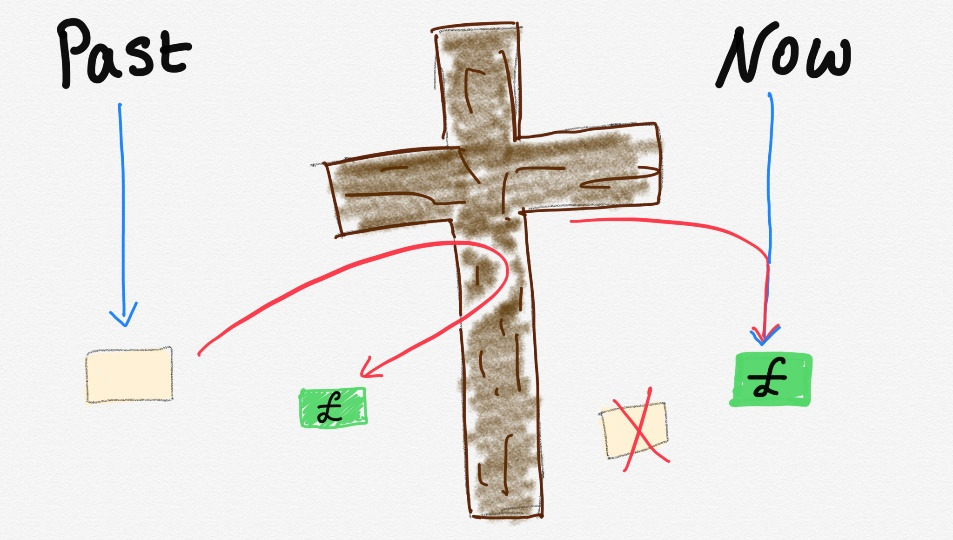 Past
Now
£
£